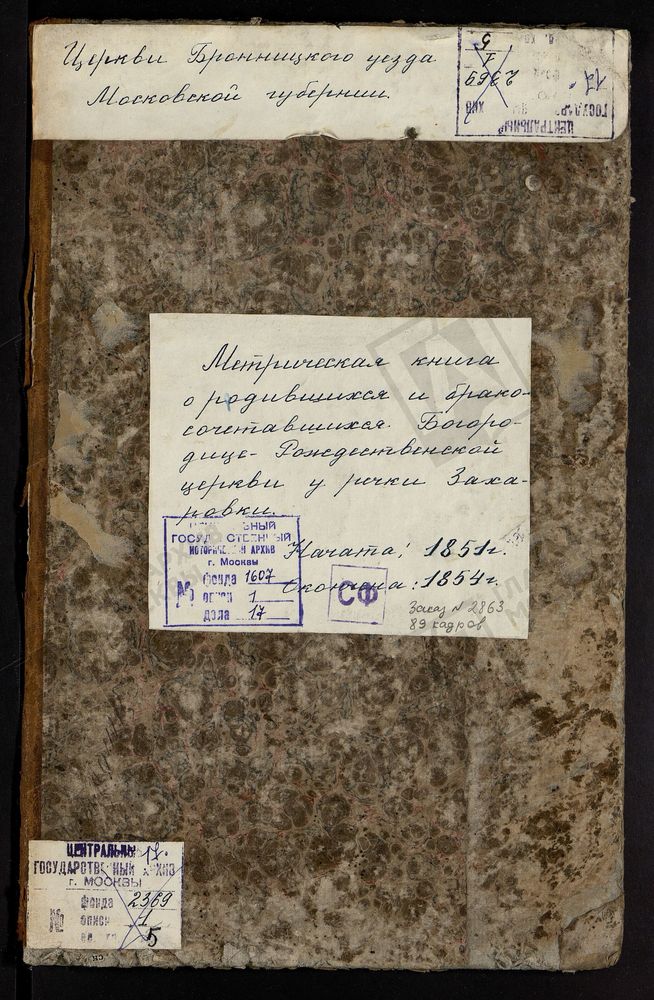 Церкви Бронницкого уезда
Московской губернии.
5
1
2369
17
ЦЕНТРАЛЬНЫЙ
Метрическая книга
о родившихся и брако-
сочетавшихся Богоро-
дице-Рождественской
церкви у речки Заха-
ровки.
Начата: 1851г.
Окончена: 1854г.
ГОСУДАРСТВЕННЫЙ
ИСТОРИЧЕСКИЙ АРХИВ
г. Москвы
№ фонда 1607
описи 1
дела 17
СФ
Заказ № 2863
89 кадров
ЦЕНТРАЛЬНЫЙ 17.
ГОСУДАРСТВЕННЫЙ АРХИВ
г. МОСКВЫ
№ фонда 2369
описи 1
5